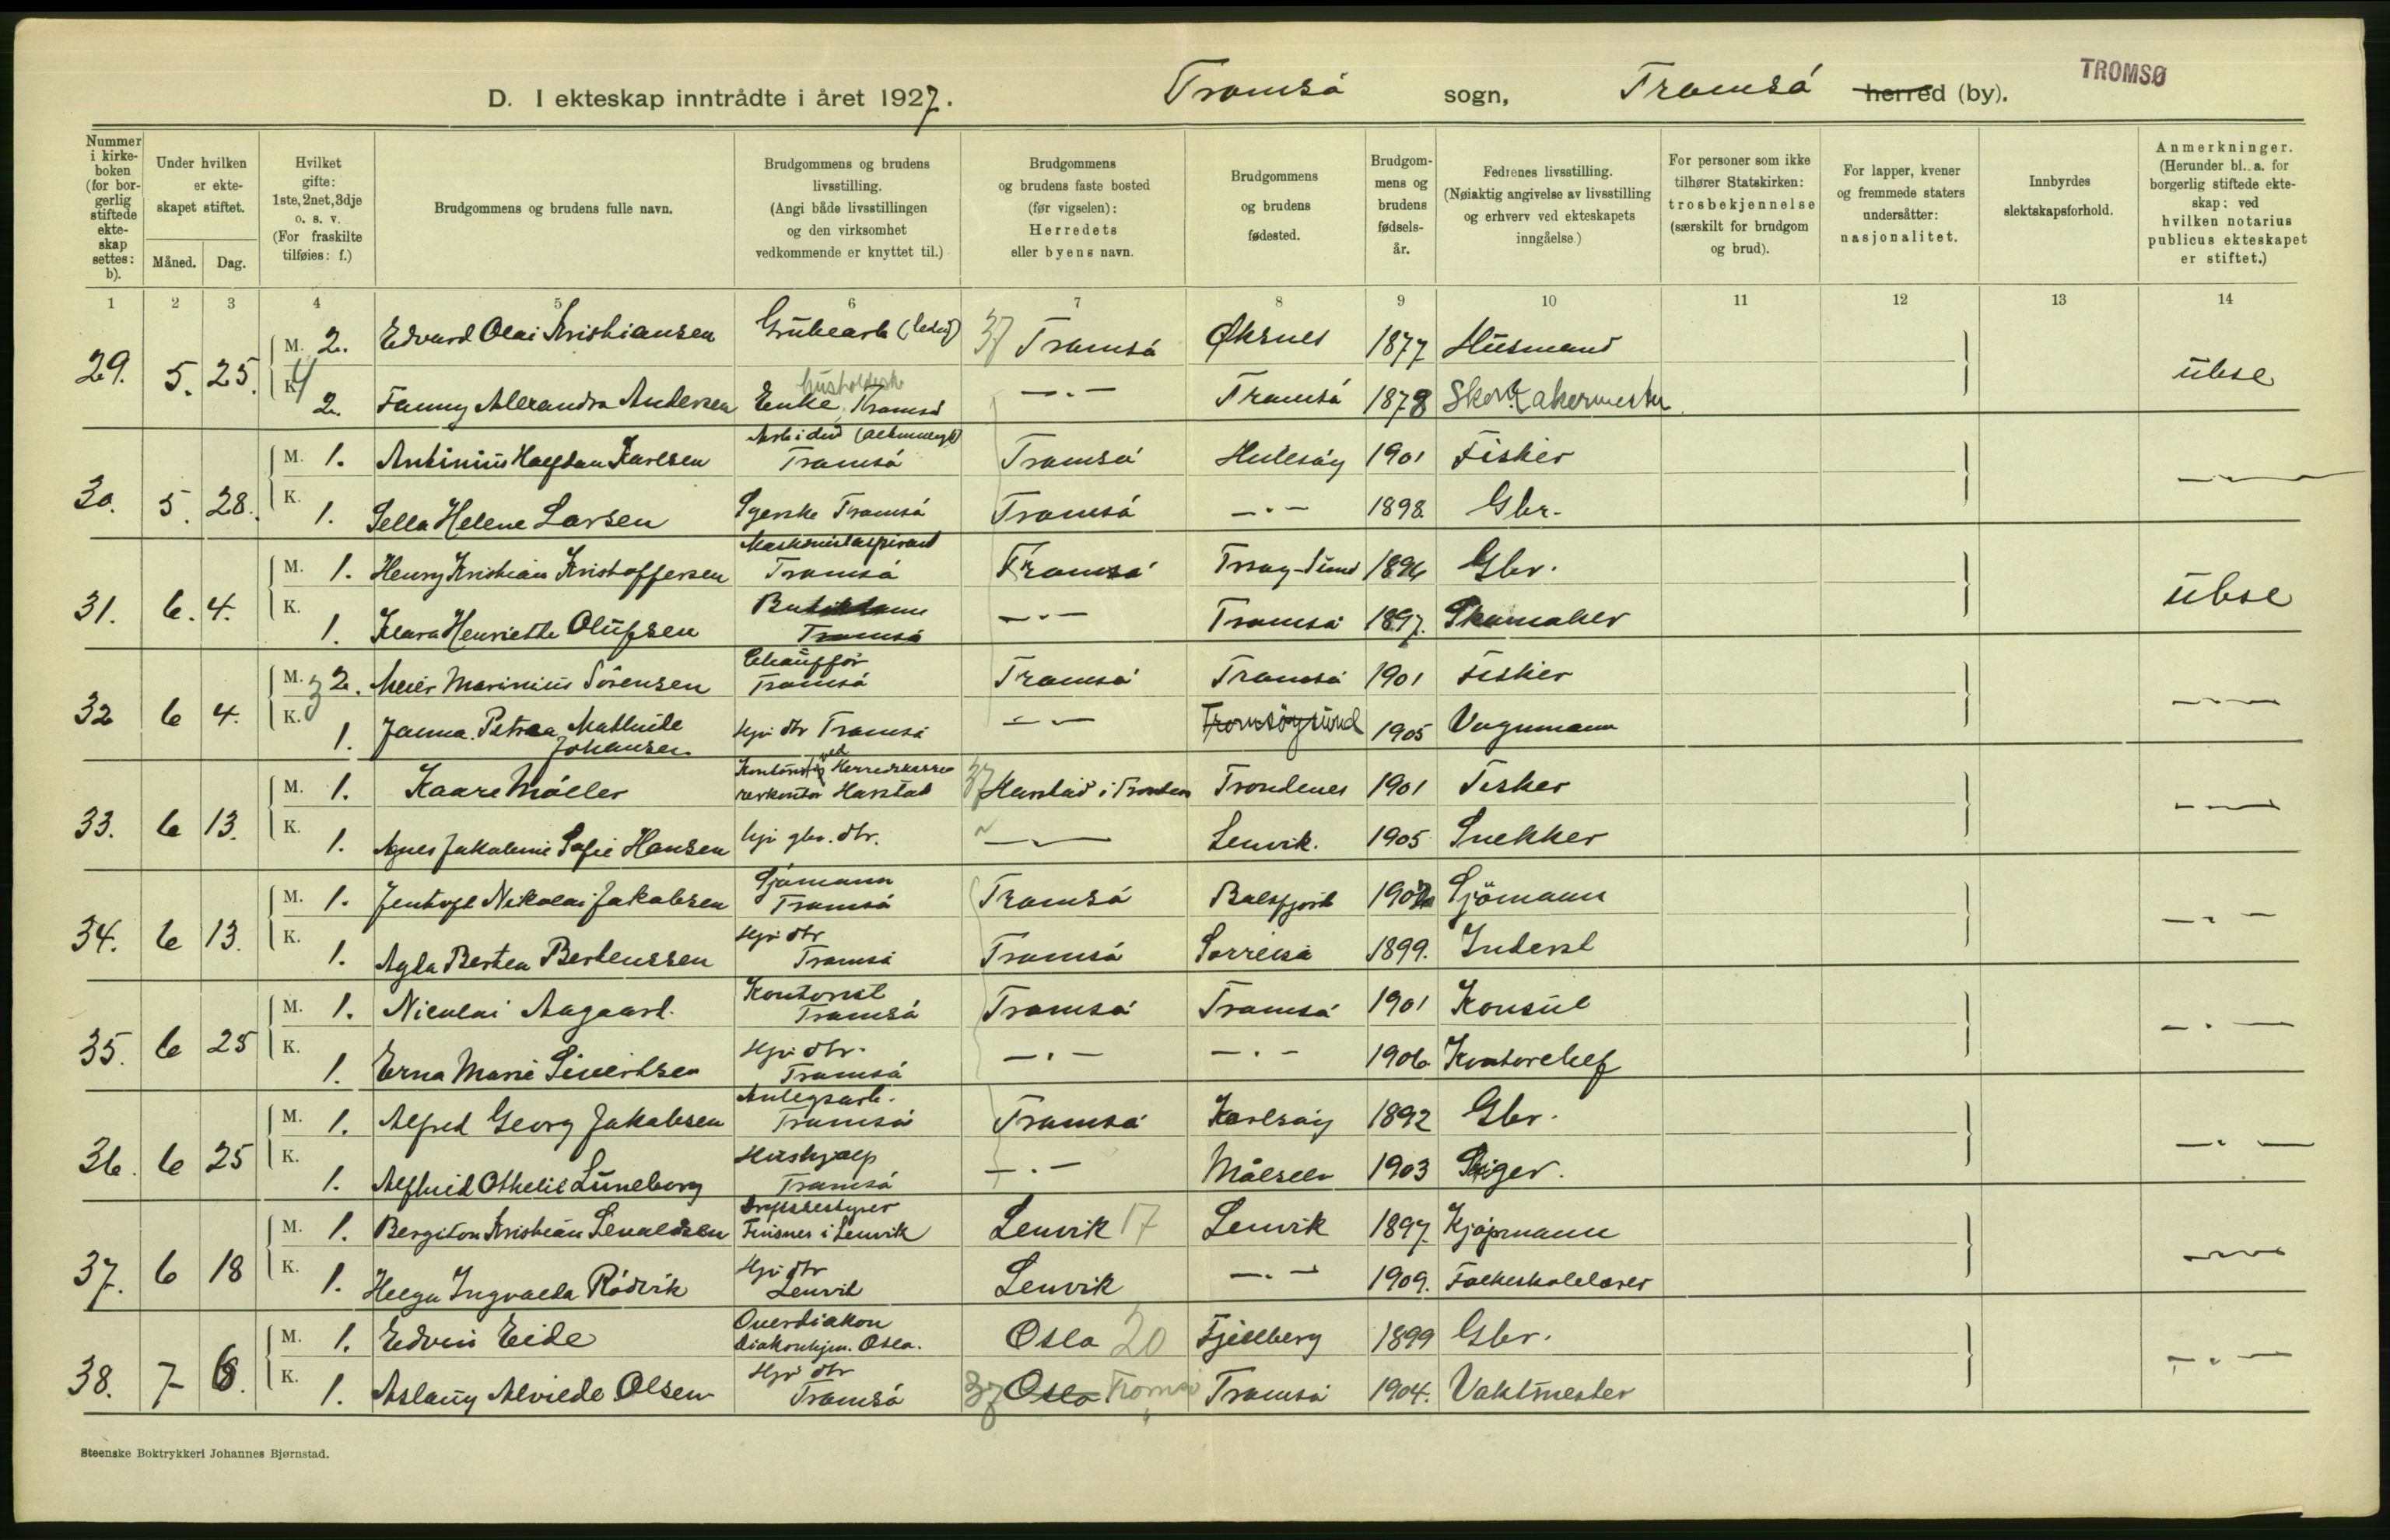 D. I ekteskap inntrådte i året 1927. Tromsö sogn, Tromsö herred (by). TROMSØ
Nummer i kirkeboken (for borgerlig stiftede ekteskap settes: b).
Under hvilken er ekteskapet stiftet.
Måned. Dag.
Hvilket gifte: 1ste, 2net, 3dje o. s. v. (For fraskilte tilføies: f.)
Brudgommens og brudens fulle navn.
Brudgommens og brudens livsstilling. (Angi både livsstillingen og den virksomhet vedkommende er knyttet til.)
Brudgommens og brudens faste bosted (før vigselen): Herredets eller byens navn.
Brudgommens og brudens fødested.
Brudgommens og brudens fødselsår.
Fedrenes livsstilling. (Nøiaktig angivelse av livsstilling og erhverv ved ekteskapets inngåelse.)
For personer som ikke tilhører Statskirken: trosbekjennelse (særskilt for brudgom og brud).
For lapper, kvener og fremmede staters undersåtter: nasjonalitet.
Innbyrdes slektskapsforhold.
Anmerkninger. (Herunder bl. a. for borgerlig stiftede ekteskap: ved hvilken notarius publicus ekteskapet er stiftet.)
1 2 3 4 5 6 7 8 9 10 11 12 13 14
29. 5. 25. M. 2. Edvard Olai Kristiansen Grubearb (ledig) 37 Tromsö Øksnes 1877 Husmand
K. 2. Fanny Alexandra Andersen Enke, Tromsö —.— Tromsö 1878
30. 5. 28. M. 1. Antinius Halfdan Karlsen Tromsö Tromsö Helesöy 1901 Fisker
K. 1. Sella Helene Larsen Syerske Tromsö Tromsö —.— 1898 Gbr.
31. 6. 4. M. 1. Henry Kristian Kristoffersen Maskinistaspirant Tromsö Tromsö 1896 Gbr.
K. 1. Klara Henriette Olufsen Tromsö —.— Tromsö 1897. Skomaker
32 6 4. M. 2. Meier Marinius Sörensen Chaufför Tromsö Tromsö Tromsö 1901 Fisker
K. 1. Janna Petrea Mathilde Johansen Hjv. dtr Tromsö —.— Tromsöysund 1905 Vognmann
33. 6 13. M. 1. Kaare Möller Kontorist ved Herredskasserkontor Harstad 37 Harstad i Tronden Trondenes 1901 Fisker
K. 1. Agnes Jakobine Sofie Hansen hjv. gbr. dtr. —.— Lenvik. 1905 Snekker
34. 6 13. M. 1. Jentoft Nikolai Jakobsen Sjömann Tromsö Tromsö Balsfjord Sjömann
K. 1. Agda Bertea Bertenssen Hjv. dtr Tromsö Tromsö Sörreisa 1899. Inderst
35. 6 25 M. 1. Nicolai Aagaard. Kontorist Tromsö Tromsö Tromsö 1901 Konsul
K. 1. Erna Marie Sivertsen Hjv. dtr. Tromsö —.— —.— 1906 Kontorchef
36. 6 25 M. 1. Alfred Georg Jakobsen Anlegsarb. Tromsö Tromsö Karlsöy 1892 Gbr.
K. 1. Alfhild Othelie Lüneborg Hushjælp Tromsö —.— Målselv 1903
37. 6 18 M. 1. Bergiton Kristian Senaldsen Driftsbestyrer Finsnes i Lenvik Lenvik 17 Lenvik 1897. Kjöpmann
K. 1. Helga Ingvalda Rödvik Hjv. dtr Lenvik Lenvik —.— 1909. Folkeskolelærer
38. 7 M. 1. Edvin Eide Overdiakon Diakonhjem. Oslo. Oslo 20 Fjeldberg 1899 Gbr.
K. 1. Aslaug Alvilde Olsen Hjv. dtr Tromsö 37 Oslo Tromsö Tromsö 1904. Vaktmester
Steenske Boktrykkeri Johannes Bjørnstad.